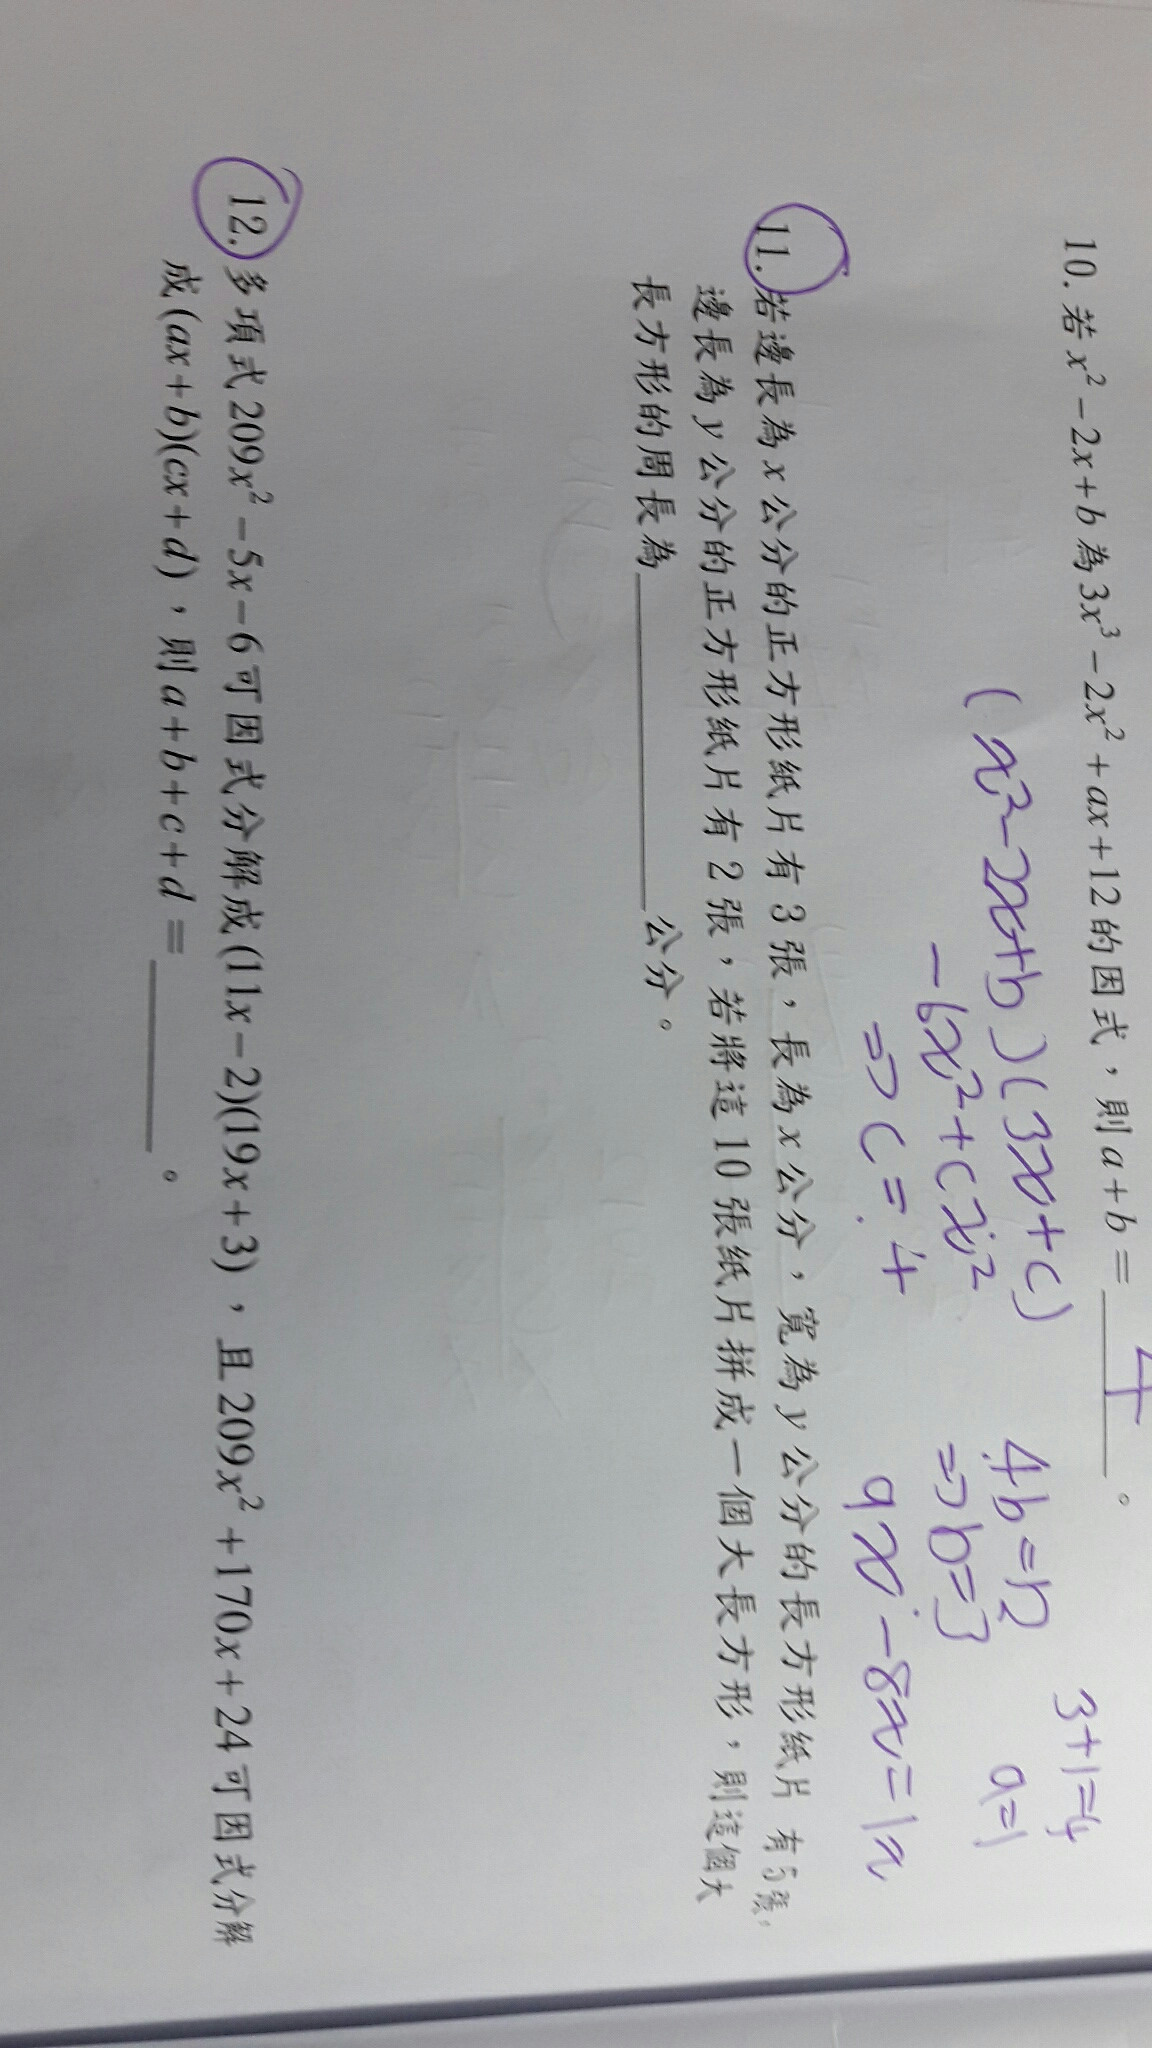 10. 若 x² − 2x + b 為 3x³ − 2x² + ax + 12 的因式，則 a + b = ＿＿＿。
4
(x² − 2x + b)(3x + c)
− 6x² + cx²
⇒ c = 4
4b = 12
⇒ b = 3
9x − 8x = 1x
3 + 1 = 4
a = 1
11. 若邊長為 x 公分的正方形紙片有 3 張，長為 x 公分，寬為 y 公分的長方形紙片 有 5 張，
邊長為 y 公分的正方形紙片有 2 張，若將這 10 張紙片拼成一個大長方形，則這個大
長方形的周長為＿＿＿＿＿＿公分。
12. 多項式 209x² − 5x − 6 可因式分解成 (11x − 2)(19x + 3)，且 209x² + 170x + 24 可因式分解
成 (ax + b)(cx + d)，則 a + b + c + d = ＿＿＿。